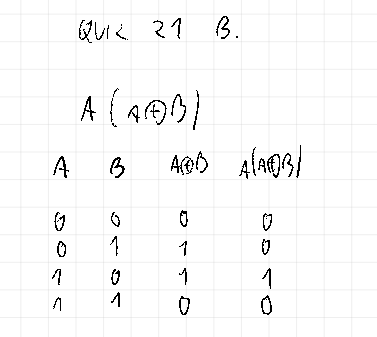 QUIZ 21 B.
A(A⊕B)
A B A⊕B A(A⊕B)
0 0 0 0
0 1 1 0
1 0 1 1
1 1 0 0